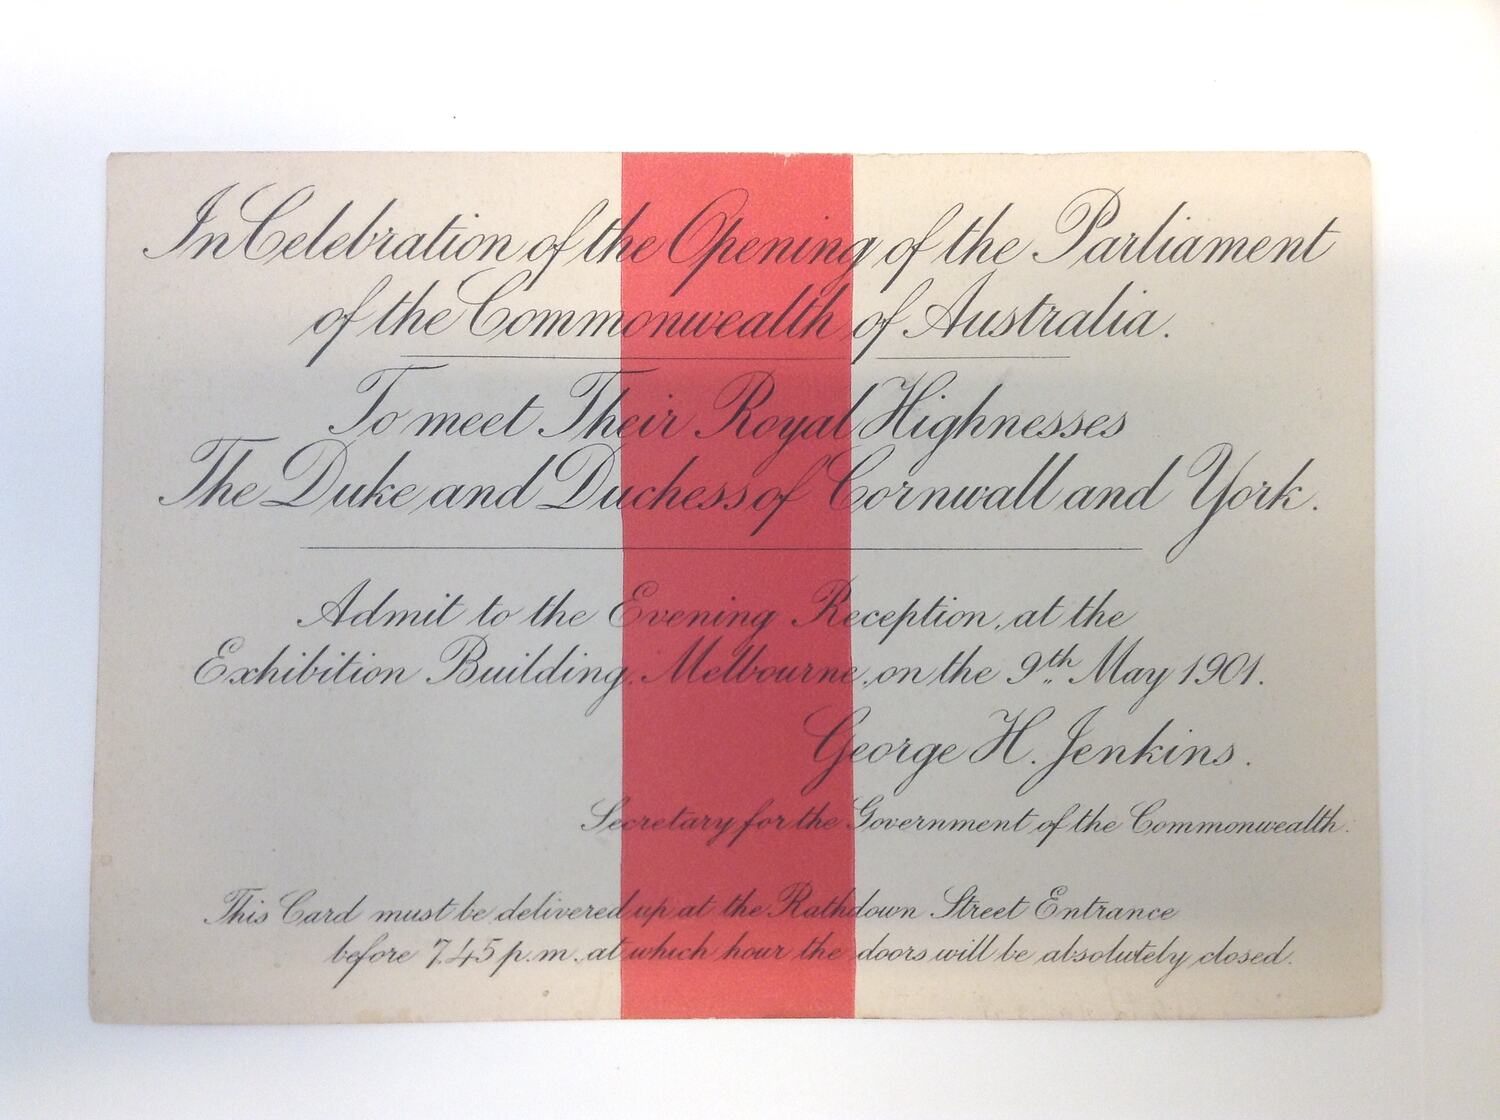 In Celebration of the Opening of the Parliament
of the Commonwealth of Australia.
To meet Their Royal Highnesses
The Duke and Duchess of Cornwall and York.
Admit to the Evening Reception, at the
Exhibition Building, Melbourne, on the 9th May 1901.
George H. Jenkins.
Secretary for the Government of the Commonwealth.
This Card must be delivered up at the Rathdown Street Entrance
before 7.45 p.m. at which hour the doors will be absolutely closed.